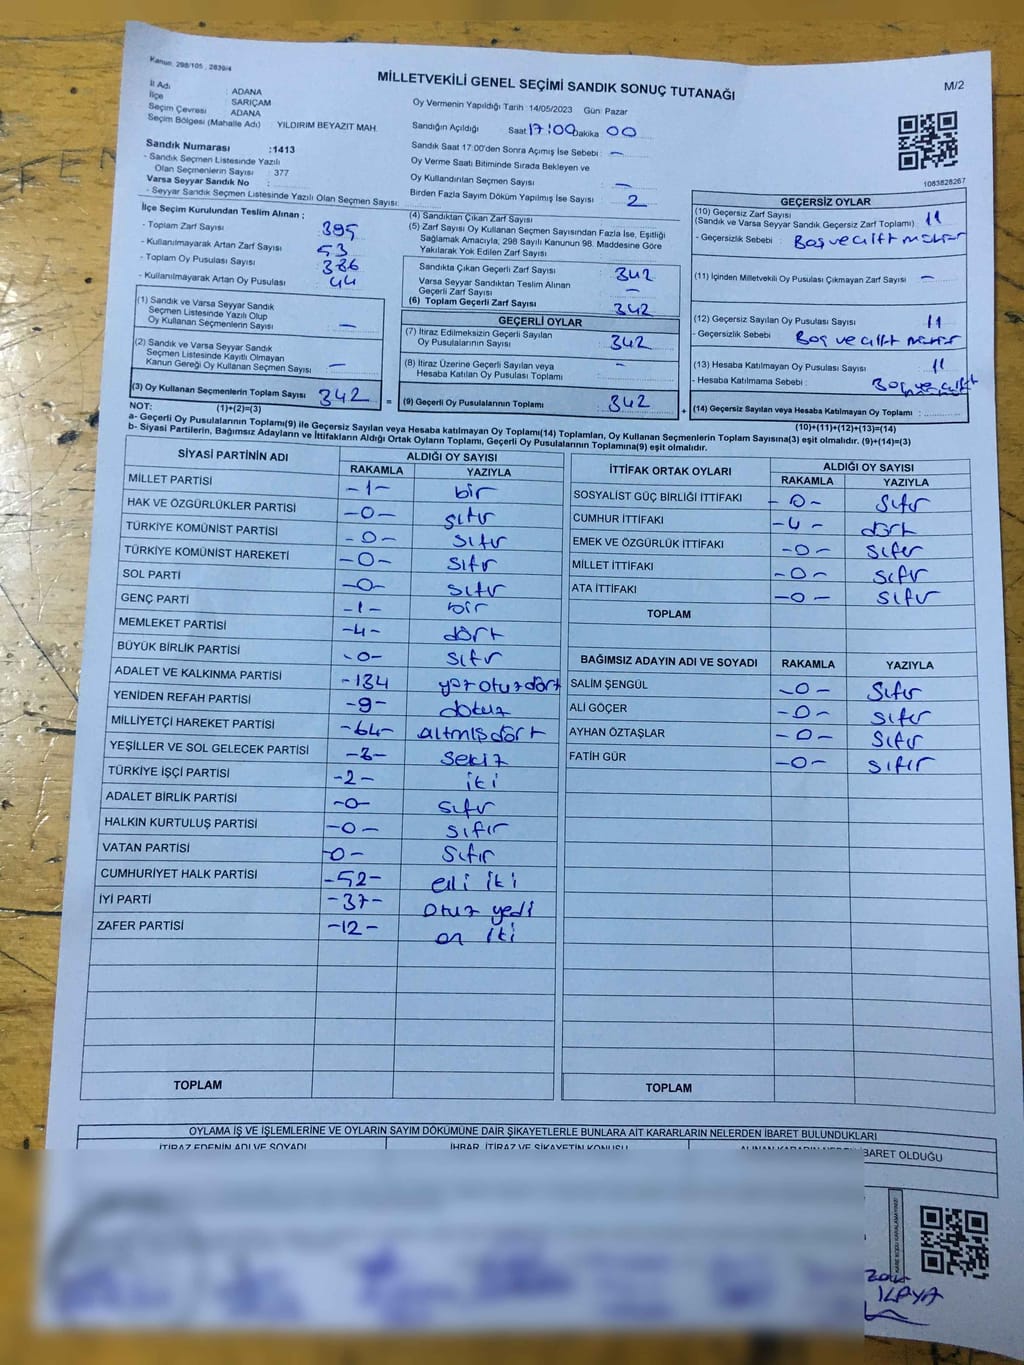 Kanun: 298/105 , 2839/4
MİLLETVEKİLİ GENEL SEÇİMİ SANDIK SONUÇ TUTANAĞI
M/2
İl Adı : ADANA
İlçe : SARIÇAM
Seçim Çevresi : ADANA
Seçim Bölgesi (Mahalle Adı) : YILDIRIM BEYAZIT MAH.
Sandık Numarası :1413
- Sandık Seçmen Listesinde Yazılı
Olan Seçmenlerin Sayısı : 377
Varsa Seyyar Sandık No :
- Seyyar Sandık Seçmen Listesinde Yazılı Olan Seçmen Sayısı:
Oy Vermenin Yapıldığı Tarih :14/05/2023 Gün: Pazar
Sandığın Açıldığı Saat 17:00 Dakika 00
Sandık Saat 17:00'den Sonra Açımış İse Sebebi : -
Oy Verme Saati Bitiminde Sırada Bekleyen ve
Oy Kullandırılan Seçmen Sayısı : -
Birden Fazla Sayım Döküm Yapılmış İse Sayısı : 2
1083828267
İlçe Seçim Kurulundan Teslim Alınan ;
- Toplam Zarf Sayısı : 395
- Kullanılmayarak Artan Zarf Sayısı : 53
- Toplam Oy Pusulası Sayısı : 386
- Kullanılmayarak Artan Oy Pusulası : 44
(1) Sandık ve Varsa Seyyar Sandık
Seçmen Listesinde Yazılı Olup
Oy Kullanan Seçmenlerin Sayısı : -
(2) Sandık ve Varsa Seyyar Sandık
Seçmen Listesinde Kayıtlı Olmayan
Kanun Gereği Oy Kullanan Seçmen Sayısı : -
(3) Oy Kullanan Seçmenlerin Toplam Sayısı : 342 =
(1)+(2)=(3)
(4) Sandıktan Çıkan Zarf Sayısı
(5) Zarf Sayısı Oy Kullanan Seçmen Sayısından Fazla İse, Eşitliği
Sağlamak Amacıyla, 298 Sayılı Kanunun 98. Maddesine Göre
Yakılarak Yok Edilen Zarf Sayısı :
Sandıkta Çıkan Geçerli Zarf Sayısı : 342
Varsa Seyyar Sandıktan Teslim Alınan
Geçerli Zarf Sayısı : -
(6) Toplam Geçerli Zarf Sayısı : 342
GEÇERLİ OYLAR
(7) İtiraz Edilmeksizin Geçerli Sayılan
Oy Pusulalarının Sayısı : 342
(8) İtiraz Üzerine Geçerli Sayılan veya
Hesaba Katılan Oy Pusulası Toplamı : -
(9) Geçerli Oy Pusulalarının Toplamı : 342 +
GEÇERSİZ OYLAR
(10) Geçersiz Zarf Sayısı
(Sandık ve Varsa Seyyar Sandık Geçersiz Zarf Toplamı) : 11
- Geçersizlik Sebebi : Boş ve çift mühür
(11) İçinden Milletvekili Oy Pusulası Çıkmayan Zarf Sayısı : -
(12) Geçersiz Sayılan Oy Pusulası Sayısı : 11
- Geçersizlik Sebebi : Boş ve çift mühür
(13) Hesaba Katılmayan Oy Pusulası Sayısı : 11
- Hesaba Katılmama Sebebi : Boş ve çift
(14) Geçersiz Sayılan veya Hesaba Katılmayan Oy Toplamı :
(10)+(11)+(12)+(13)=(14)
NOT:
a- Geçerli Oy Pusulalarının Toplamı(9) ile Geçersiz Sayılan veya Hesaba Katılmayan Oy Toplamı(14) Toplamları, Oy Kullanan Seçmenlerin Toplam Sayısına(3) eşit olmalıdır. (9)+(14)=(3)
b- Siyasi Partilerin, Bağımsız Adayların ve İttifakların Aldığı Ortak Oyların Toplamı, Geçerli Oy Pusulalarının Toplamına(9) eşit olmalıdır.
SİYASİ PARTİNİN ADI ALDIĞI OY SAYISI
RAKAMLA YAZIYLA
MİLLET PARTİSİ -1- bir
HAK VE ÖZGÜRLÜKLER PARTİSİ -0- sıfır
TÜRKİYE KOMÜNİST PARTİSİ -0- sıfır
TÜRKİYE KOMÜNİST HAREKETİ -0- sıfır
SOL PARTİ -0- sıfır
GENÇ PARTİ -1- bir
MEMLEKET PARTİSİ -4- dört
BÜYÜK BİRLİK PARTİSİ -0- sıfır
ADALET VE KALKINMA PARTİSİ -134 yüz otuz dört
YENİDEN REFAH PARTİSİ -9- dokuz
MİLLİYETÇİ HAREKET PARTİSİ -64- altmış dört
YEŞİLLER VE SOL GELECEK PARTİSİ -8- sekiz
TÜRKİYE İŞÇİ PARTİSİ -2- iki
ADALET BİRLİK PARTİSİ -0- sıfır
HALKIN KURTULUŞ PARTİSİ -0- sıfır
VATAN PARTİSİ -0- sıfır
CUMHURİYET HALK PARTİSİ -52- elli iki
İYİ PARTİ -37- otuz yedi
ZAFER PARTİSİ -12- on iki
TOPLAM
İTTİFAK ORTAK OYLARI ALDIĞI OY SAYISI
RAKAMLA YAZIYLA
SOSYALİST GÜÇ BİRLİĞİ İTTİFAKI -0- sıfır
CUMHUR İTTİFAKI -4- dört
EMEK VE ÖZGÜRLÜK İTTİFAKI -0- sıfır
MİLLET İTTİFAKI -0- sıfır
ATA İTTİFAKI -0- sıfır
TOPLAM
BAĞIMSIZ ADAYIN ADI VE SOYADI RAKAMLA YAZIYLA
SALİM ŞENGÜL -0- sıfır
ALİ GÖÇER -0- sıfır
AYHAN ÖZTAŞLAR -0- sıfır
FATİH GÜR -0- sıfır
TOPLAM
OYLAMA İŞ VE İŞLEMLERİNE VE OYLARIN SAYIM DÖKÜMÜNE DAİR ŞİKAYETLERLE BUNLARA AİT KARARLARIN NELERDEN İBARET BULUNDUKLARI
İTİRAZ EDENİN ADI VE SOYADI İHBAR, İTİRAZ VE ŞİKAYETİN KONUSU ALINAN KARARIN NEDEN İBARET OLDUĞU